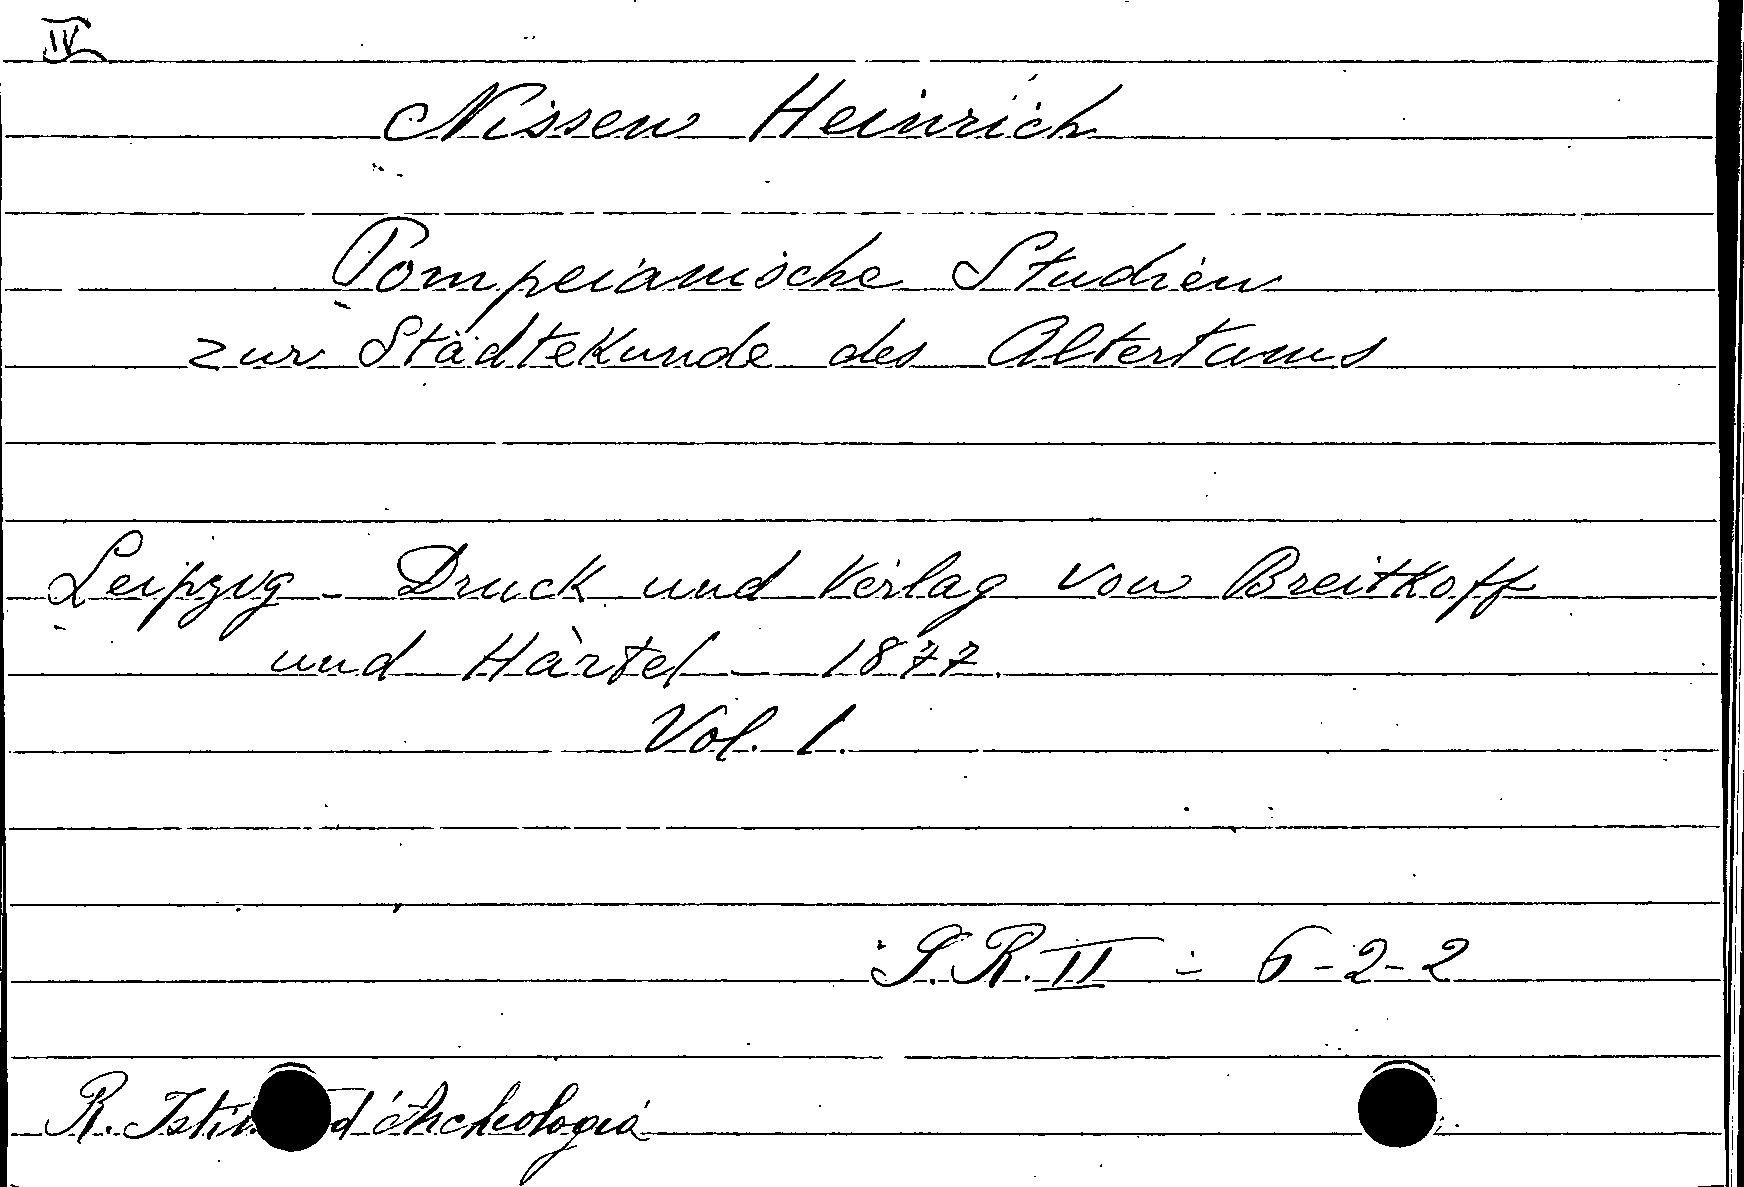 IV
Nissen Heinrich
Pompeianische Studien
zur Städtekunde des Altertums
Leipzig - Druck und Verlag von Breitkoff
und Härtel - 1877.
Vol. 1.
S.R. II - 6-2-2
R. d'Archeologia